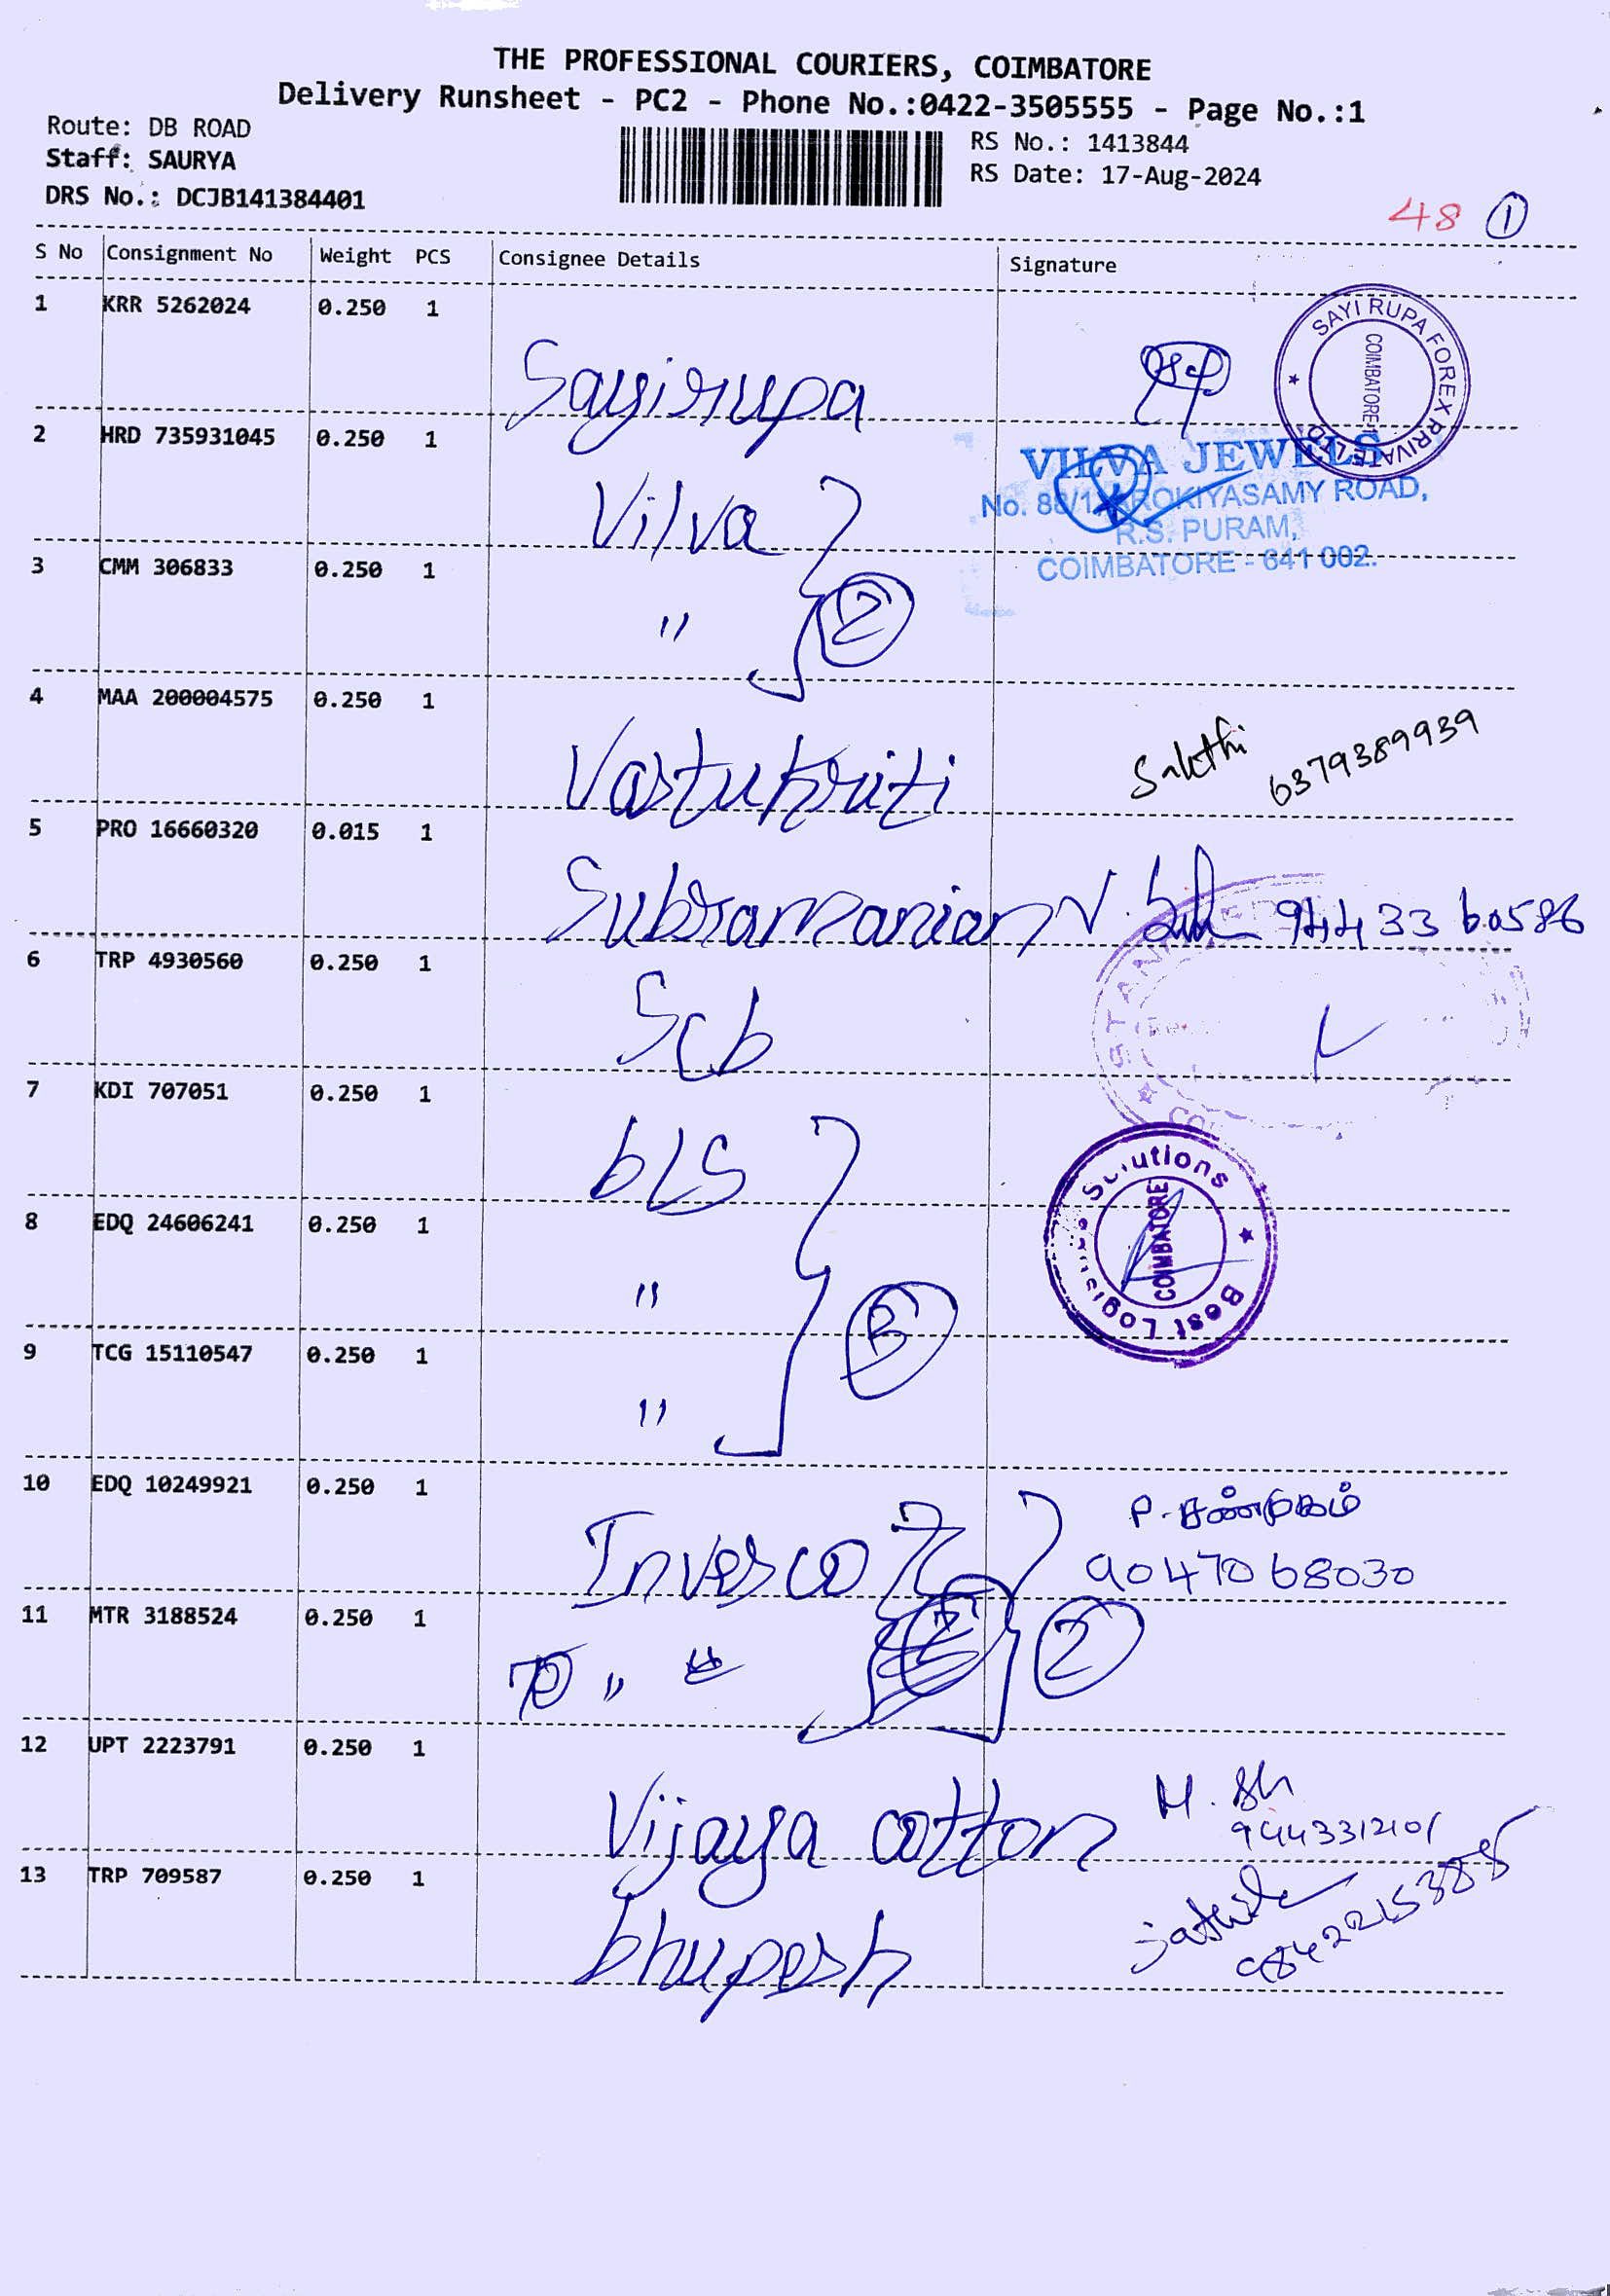 THE PROFESSIONAL COURIERS, COIMBATORE
Delivery Runsheet - PC2 - Phone No.:0422-3505555 - Page No.:1
Route: DB ROAD
Staff: SAURYA
DRS No.: DCJB141384401
RS No.: 1413844
RS Date: 17-Aug-2024
48 1
S No Consignment No Weight PCS Consignee Details Signature
1 KRR 5262024 0.250 1
Sayirupa
SAYI RUPA FOREX PRIVATE LTD
COIMBATORE
2 HRD 735931045 0.250 1
Vilva
VILVA JEWELS
No. 88/1, AROKIYASAMY ROAD,
R.S. PURAM,
COIMBATORE - 641 002.
3 CMM 306833 0.250 1
" 2
4 MAA 200004575 0.250 1
Vastukriti
Sakthi 6379389939
5 PRO 16660320 0.015 1
Subramanian V. 94433 60586
6 TRP 4930560 0.250 1
Scb
7 KDI 707051 0.250 1
bLS
Best Logistics Solutions
COIMBATORE
8 EDQ 24606241 0.250 1
"
9 TCG 15110547 0.250 1
"
10 EDQ 10249921 0.250 1
Invesco
P. சண்முகம்
9047068030
11 MTR 3188524 0.250 1
" 2
12 UPT 2223791 0.250 1
Vijaya cotton
9443312101
13 TRP 709587 0.250 1
bhupesh